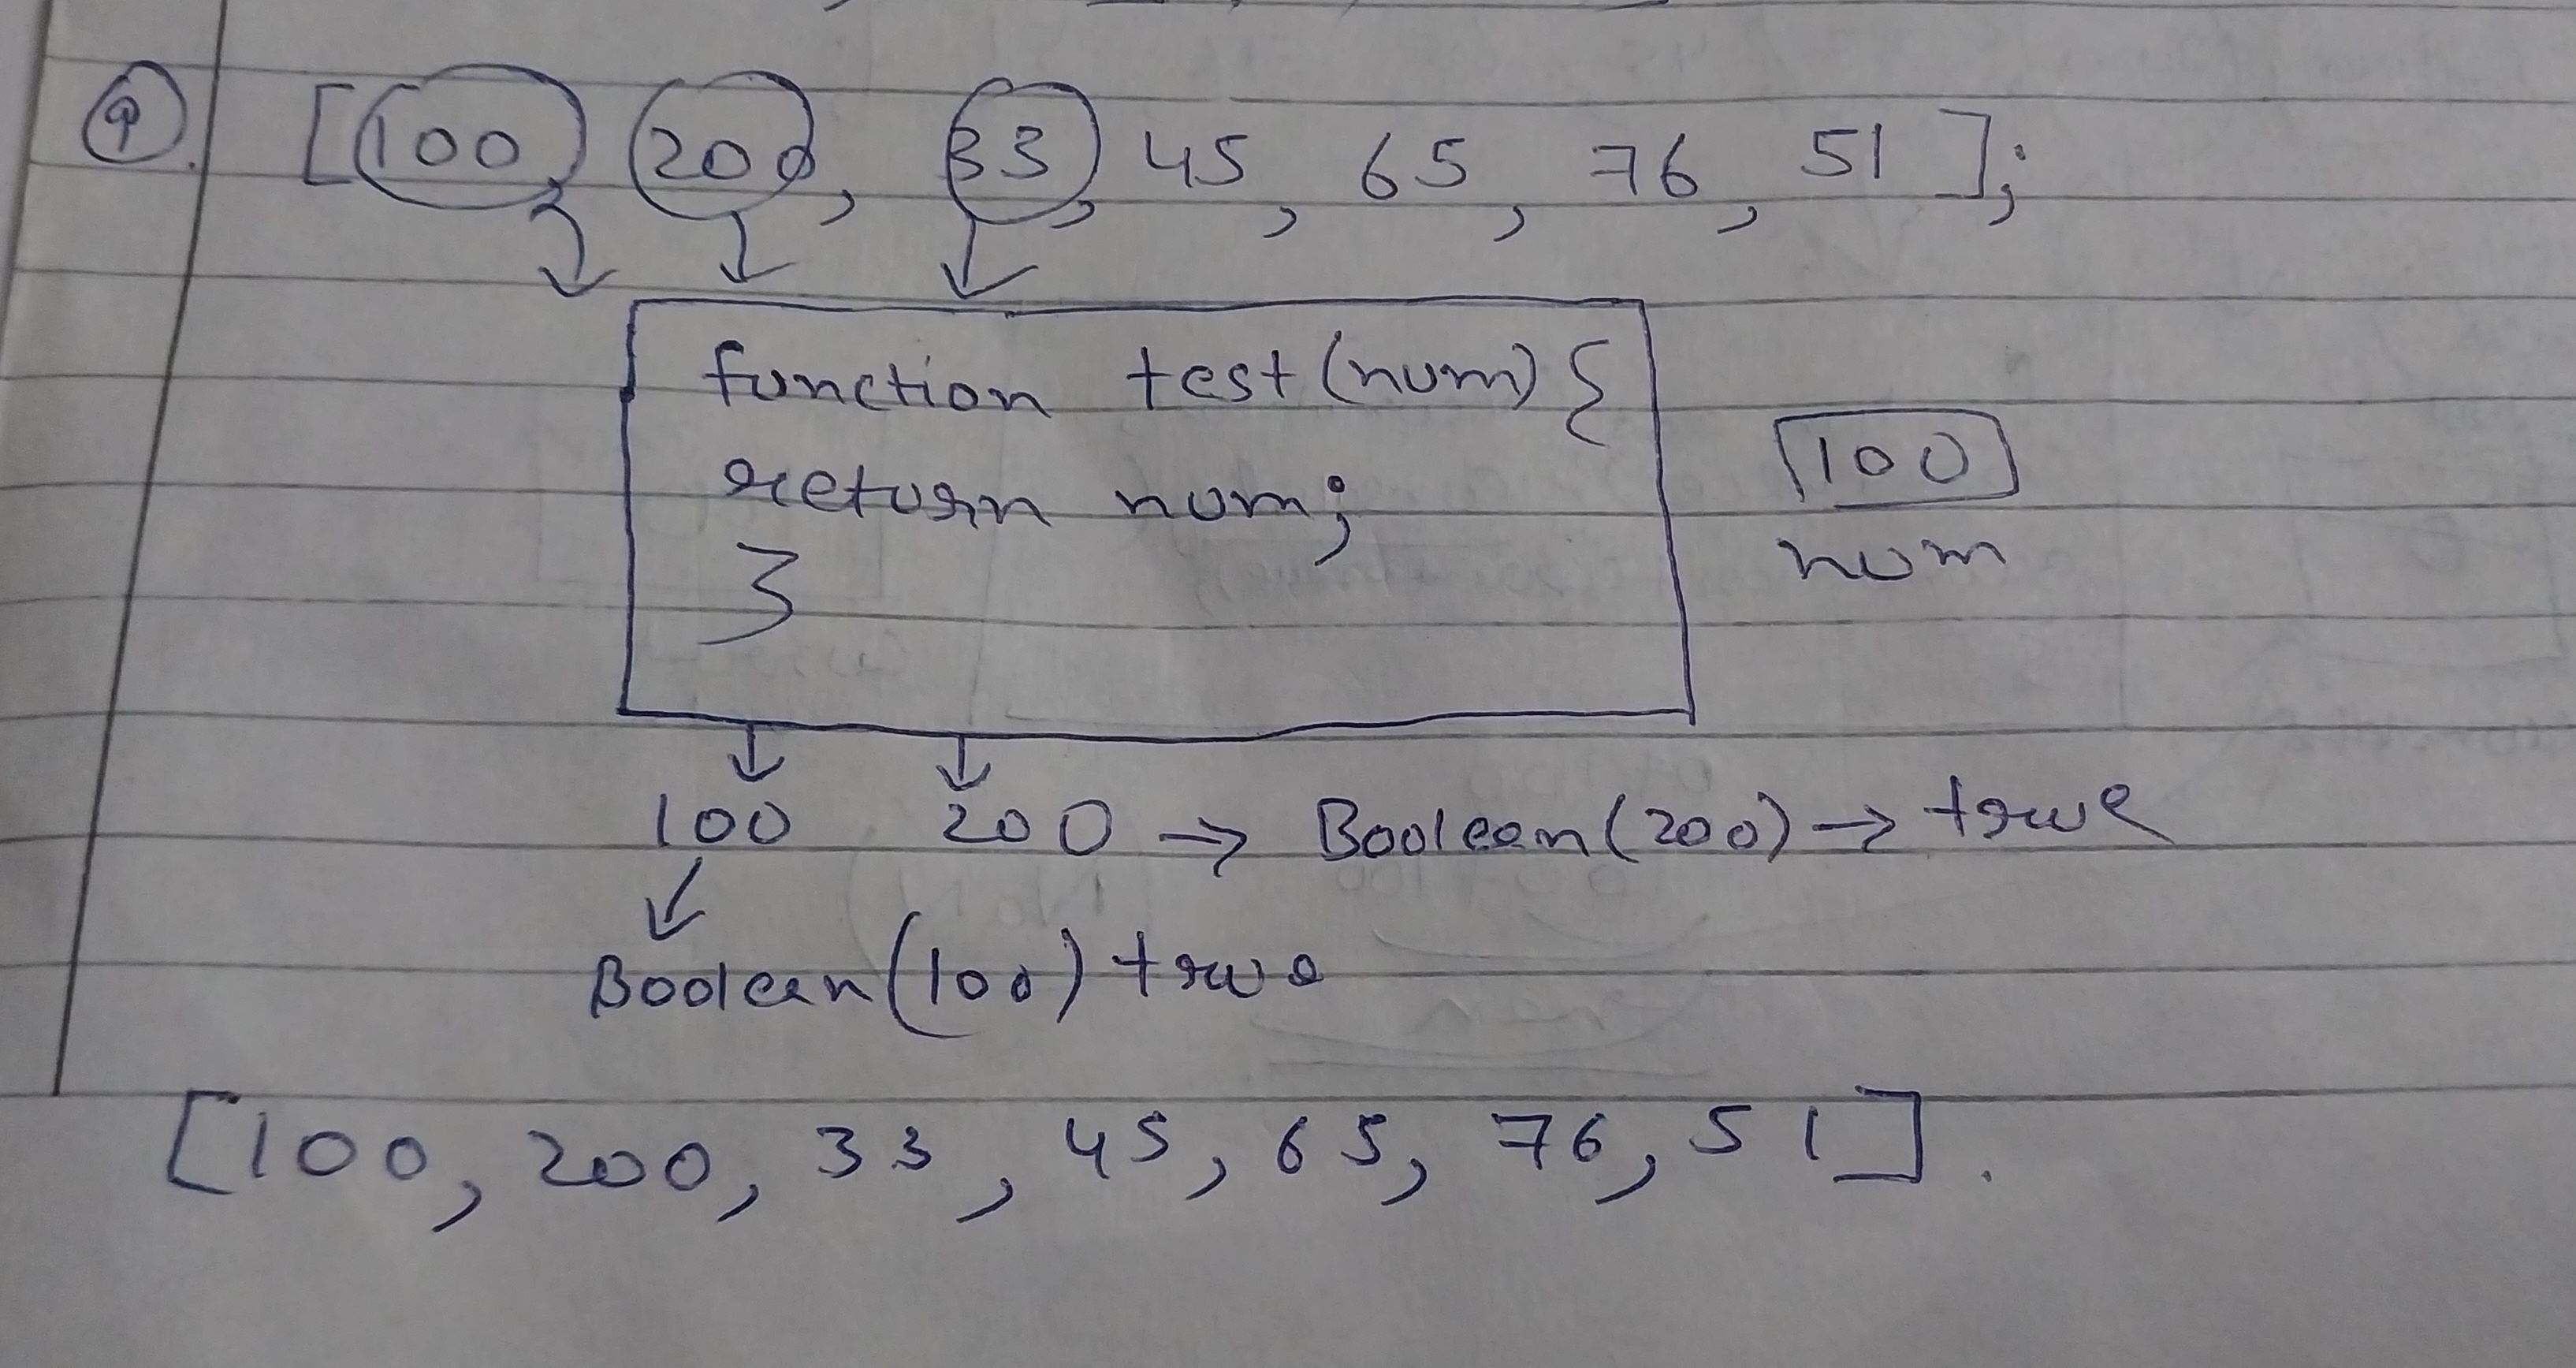 9. [100, 200, 33, 45, 65, 76, 51];
function test(num) {
return num;
}
100
num
100 200 → Boolean(200) → true
Boolean(100) true
[100, 200, 33, 45, 65, 76, 51].